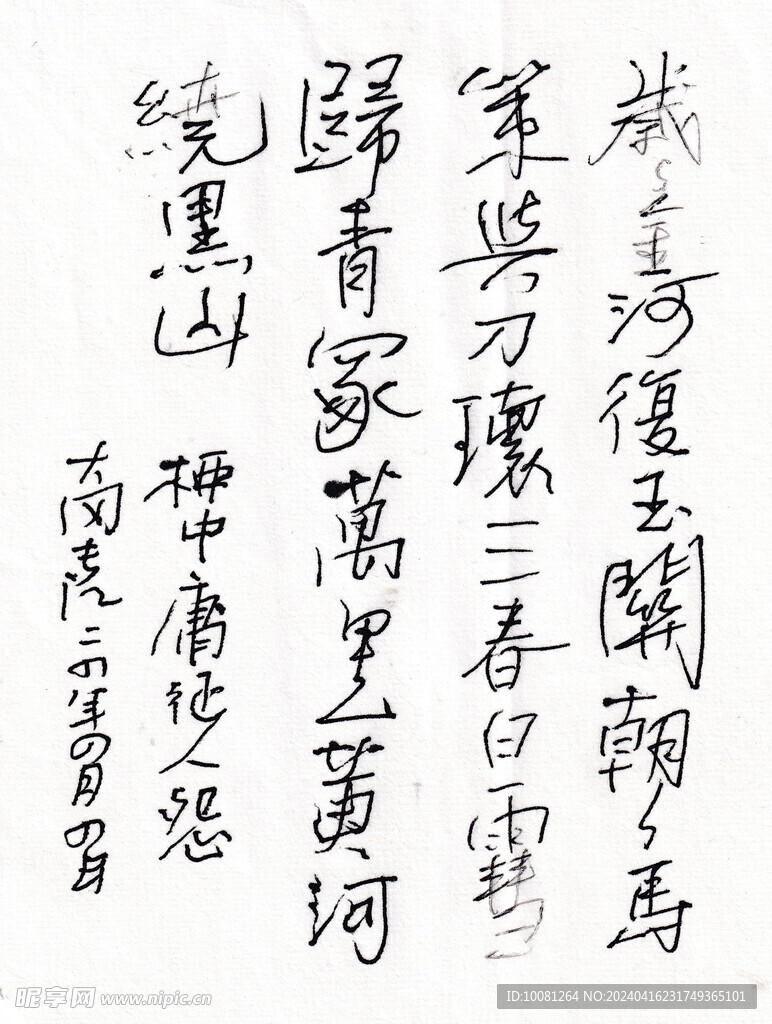 歲々金河復玉關朝々馬
策與刀環三春白雪
歸青冢萬里黃河
繞黑山
柳中庸征人怨
南院二四年四月四日
昵享网 www.nipic.cn
ID:10081264 NO:20240416231749365101